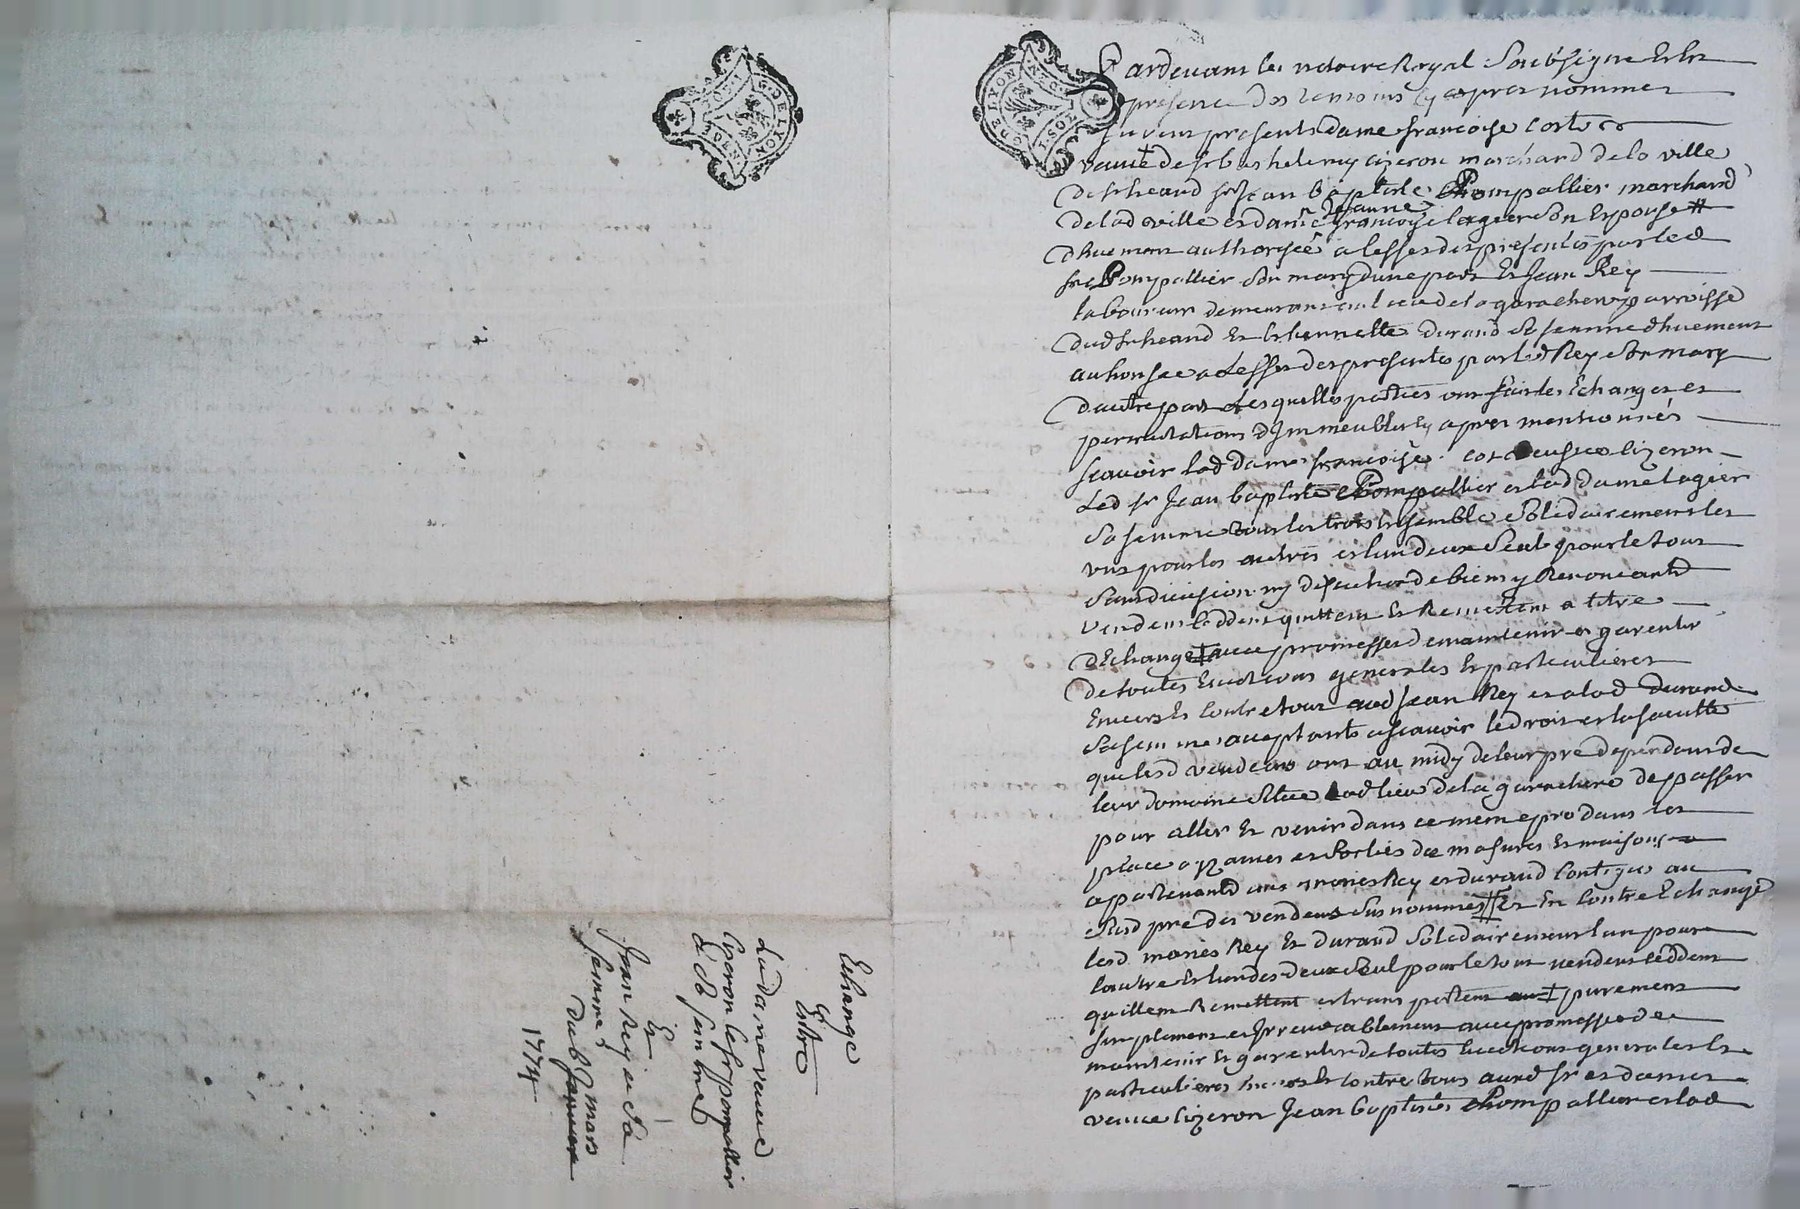 G. DE LYON
G. DE LYON
Pardevant le notoire Royal Soubsigne Et En
presence des temoins Cy apres nommez
furent presents dame francoise
veuve de sr barthelemy cizeron marchand de la ville
de st heand sr Jean baptiste Chompallier marchand
de lad ville et dame Jeanne francoise lagier Son Epouse #
dhuement authorisée a leffet des presentes par led
sr Pompallier Son mary dune part Et Jean Rey
laboureur demeurant au lieu de la garachere parroisse
dud st heand Et Ethiennette durand Sa femme dhuement
authorisee a leffet des presentes par led Rey Son mary
dautre part Lesquelles parties ont fait les Echanges et
permutations dImmeubles Cy apres mentionnés
scavoir lad dame francoise veusve cizeron
Led sr Jean baptiste Chompallier et lad dame lagier
Sa femme tous les trois Ensemble Solidairement les
uns pour les autres et lun deux Seul pour le tout
Sans division ny discution de biens y Renoncants
vendent Ceddent quittent Et Remettent a titre
dEchange avec promesse de maintenir et garentir
de toutes Evictions generales Et particulieres
Envers Et Contre tous aud Jean Rey et a lad Durand
Sa femme acceptants a scavoir le droit et la faculté
que lesd vendeurs ont au midy de leur pré dependant de
leur domaine Situé aud lieu de la garachere de passer
pour aller Et venir dans ce meme pré dans les
place aizances et Sorties de masures Et maisons
appartenants aux mariés Rey et durand Contigus au
Susd pré des vendeurs Sus nommés Et En Contre Echange
lesd mariés Rey Et durand Solidairement lun pour
lautre Et lun des deux Seul pour le tout vendent Ceddent
quittent Remettent et transportent purement
Simplement et Irrevocablement avec promesse de
maintenir Et garentir de toutes Evictions generales Et
particulieres Envers Et Contre tous auxd sr et dames
veuve Cizeron Jean baptiste Chompallier et lad
Echange
Entre
La dame veuve
Cizeron le sr pompallier
& Sa femme
Et
Jean Rey et Sa
femme
Du 8 mars
1774